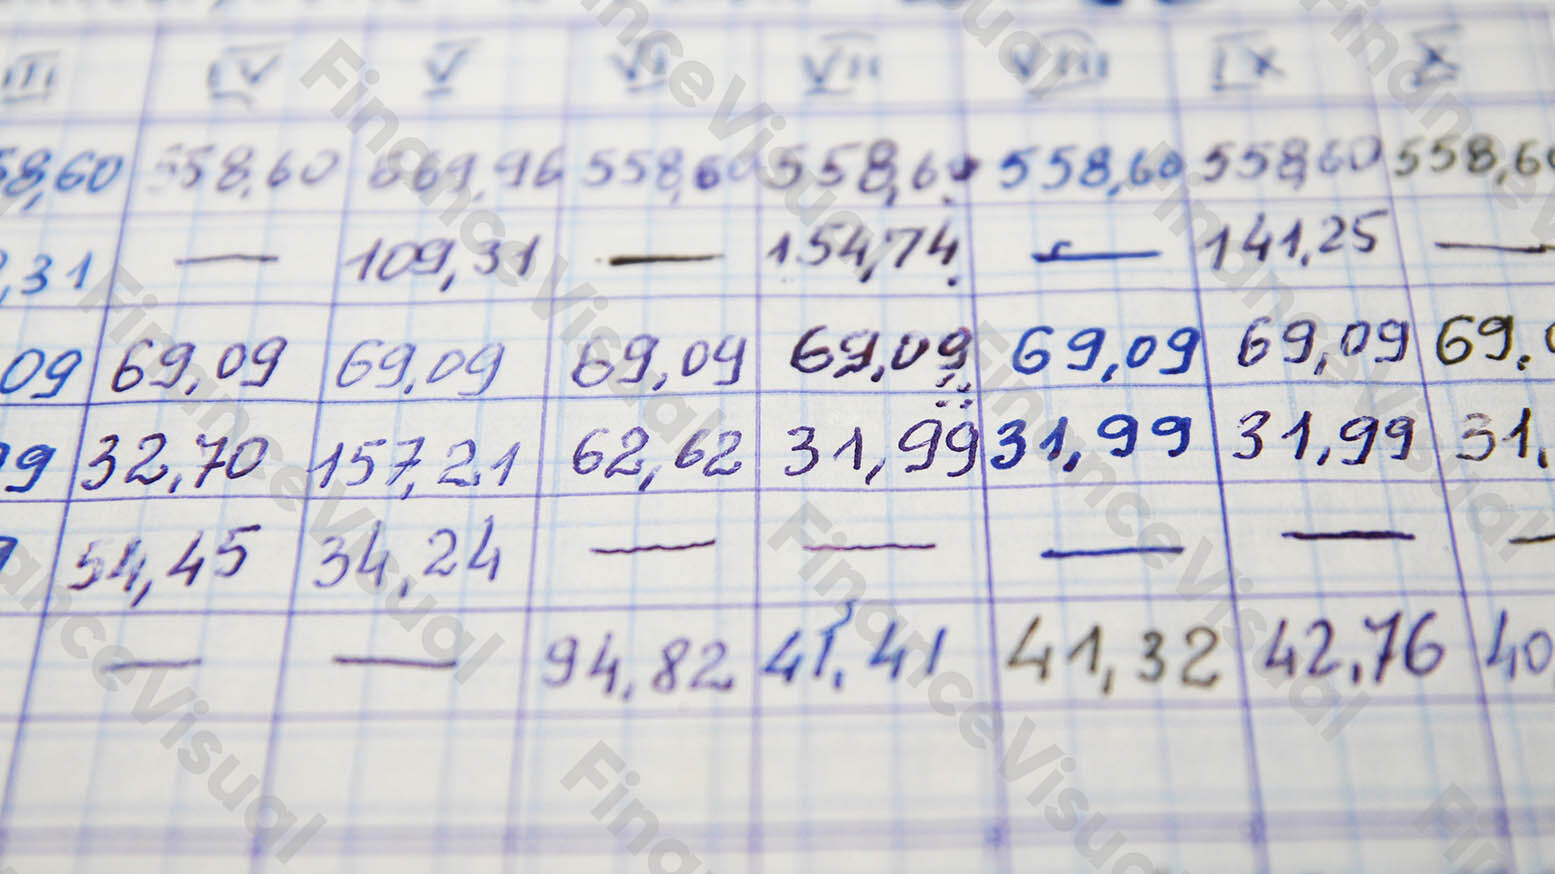 III IV V VI VII VIII IX X
58,60 558,60 869,96 558,60 558,60 558,60 558,60 558,60
,31 — 109,31 — 154,74 — 141,25 —
09 69,09 69,09 69,09 69,09 69,09 69,09 69,0
99 32,70 157,21 62,62 31,99 31,99 31,99 31,
54,45 34,24 — — — — —
— — 94,82 41,41 41,32 42,76 40
FinanceVisual